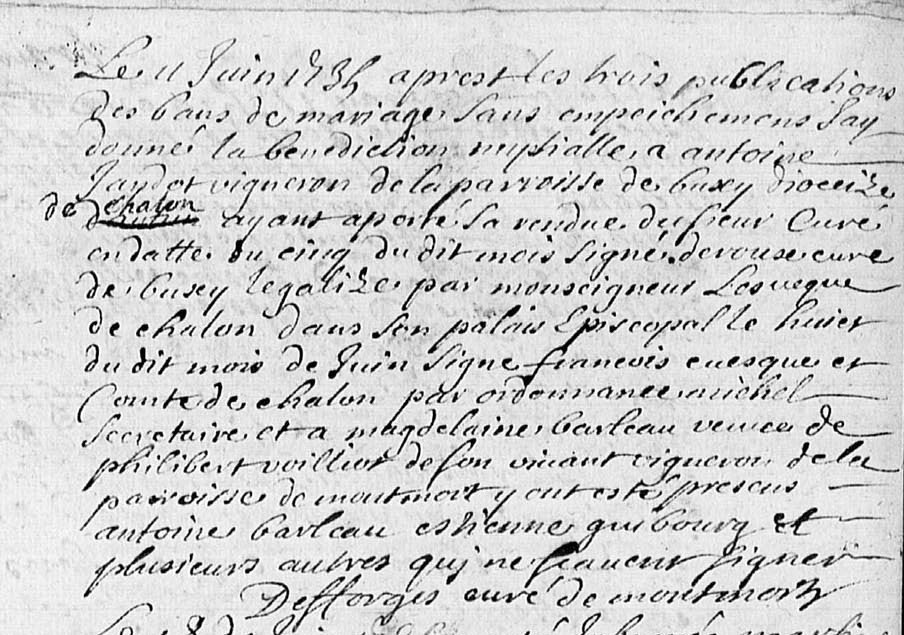 Le 11 Juin 1735 aprest les trois publications
des bans de mariage sans empeichemens Jay
donné la benediction nuptialle a antoine
Jandot vigneron de la parroisse de buxy dioceize
de chalon ayant aporté sa rendue du sieur Curé
en datte du cinq du dit mois signé derouse curé
de buxy legalize par monseigneur Lesveque
de chalon dans son palais Episcopal le huict
du dit mois de Juin signe francois evesque et
Comte de chalon par ordonnance michel
secretaire et a magdelaine barleau veuve de
philibert voilliot de son vivant vigneron de la
parroisse de montmort y ont esté presens
antoine barleau estienne guibourg et
plusieurs autres qui ne scavent signer
Defforges curé de montmort